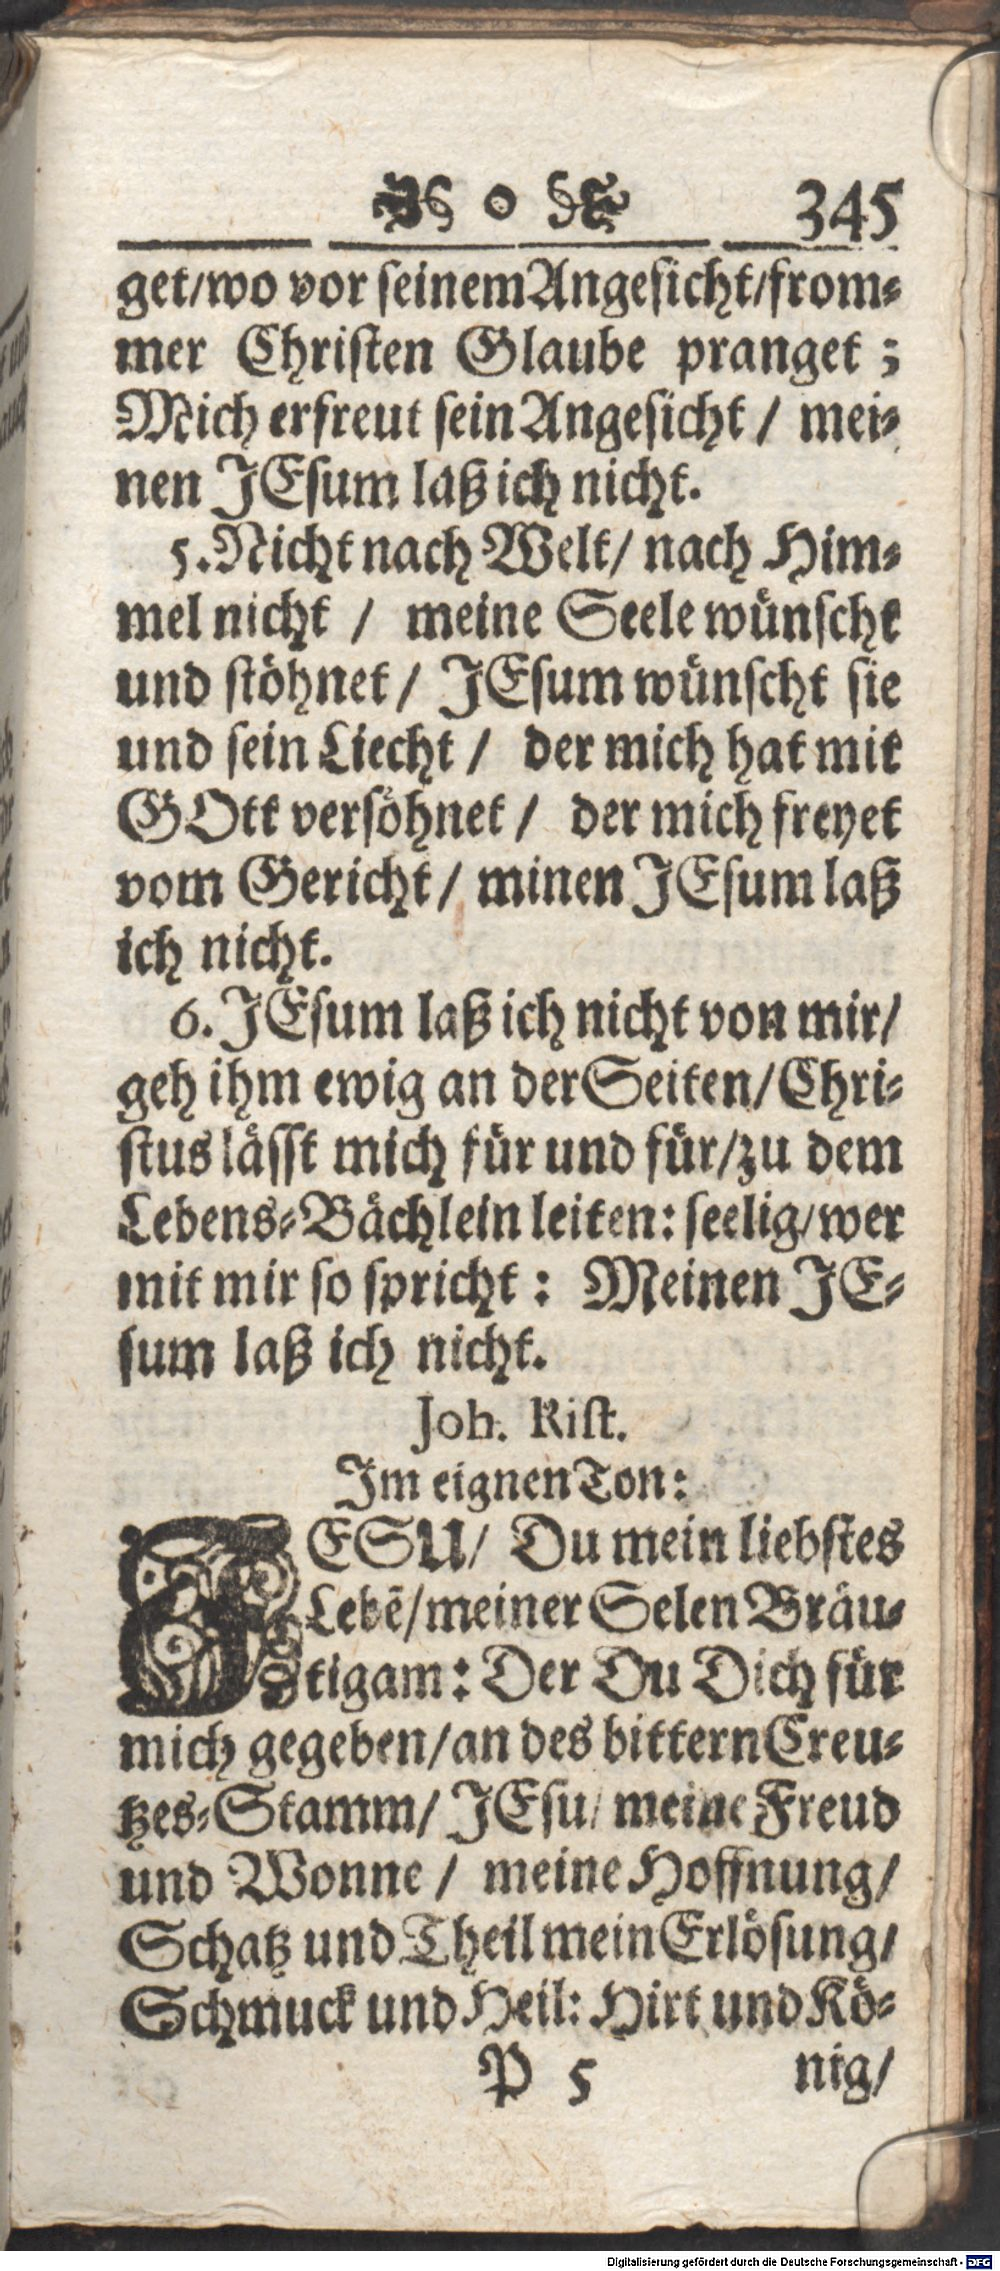 345
get/wo vor seinem Angesicht/from⸗
mer Christen Glaube pranget;
Mich erfreut sein Angesicht / mei⸗
nen JEsum laß ich nicht.
5. Nicht nach Welt/ nach Him⸗
mel nicht / meine Seele wünscht
und stöhnet / JEsum wünscht sie
und sein Liecht / der mich hat mit
GOtt versöhnet / der mich freyet
vom Gericht / minen JEsum laß
ich nicht.
6. JEsum laß ich nicht von mir/
geh ihm ewig an der Seiten/Chri⸗
stus lässt mich für und für/zu dem
Lebens⸗Bächlein leiten: seelig/wer
mit mir so spricht: Meinen JE⸗
sum laß ich nicht.
Joh. Rist.
Im eignen Ton:
JESU/ Du mein liebstes
Lebē/meiner Selen Bräu⸗
tigam: Der Du Dich für
mich gegeben/an des bittern Creu⸗
tzes⸗Stamm/ JEsu/ meine Freud
und Wonne / meine Hoffnung/
Schatz und Theil mein Erlösung/
Schmuck und Heil: Hirt und Kö⸗
P 5 nig/
Digitalisierung gefördert durch die Deutsche Forschungsgemeinschaft - DFG